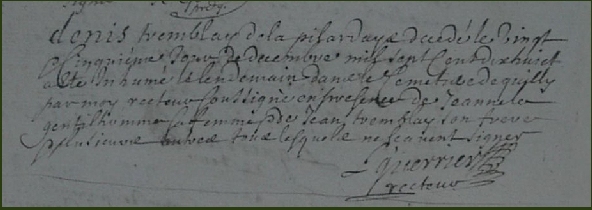 denis tremblay de la pilardaye decedé le vingt
Cinquiéme Jour de decembre mil sept Cent dixhuict
a eté Inhumé le lendemain dans le Cemetiere de quilly
par moy recteur soussigné en presence de Jeanne le
gentilhomme sa femme, de Jean tremblay son frere
plusieurs autres tous lesquels ne scavent signer
guerrier
recteur